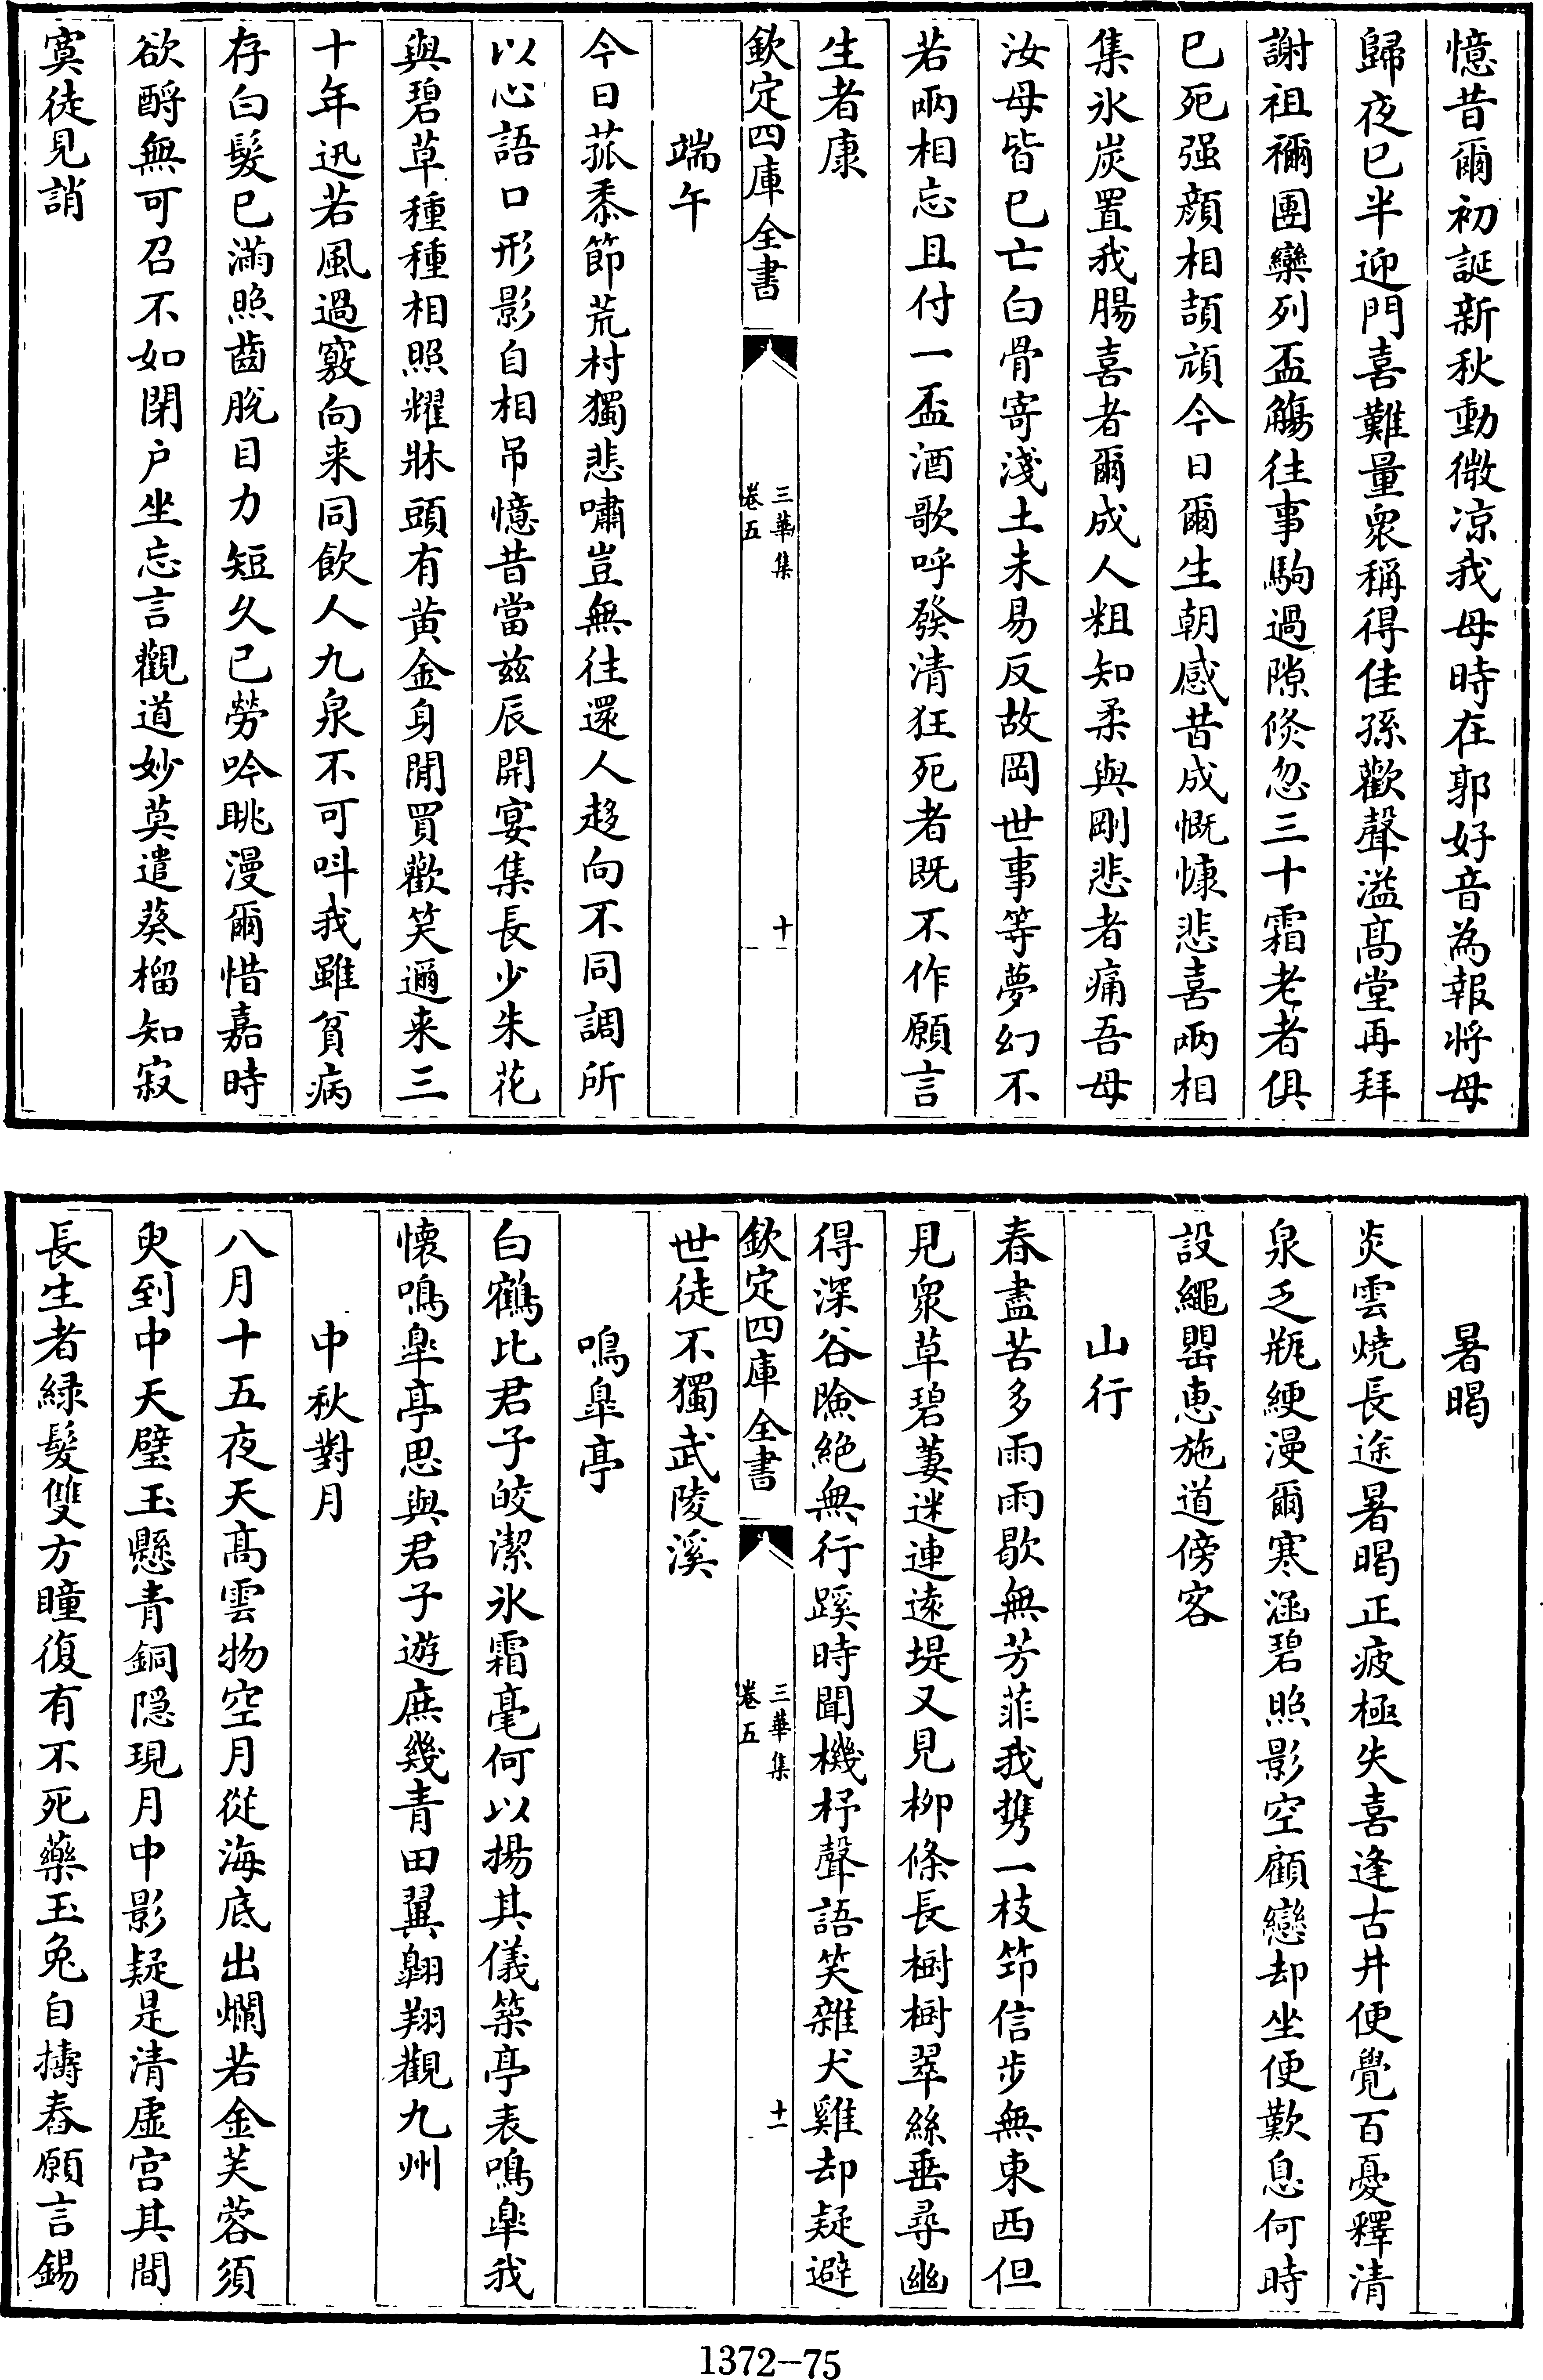 憶昔爾初誕新秋動微凉我母時在郭好音為報将母
歸夜已半迎門喜難量衆稱得佳孫歡聲溢髙堂再拜
謝祖禰團欒列盃觴往事駒過隙倐忽三十霜老者俱
已死强顔相頡頏今日爾生朝感昔成慨慷悲喜兩相
集氷炭置我腸喜者爾成人粗知柔與剛悲者痛吾母
汝母皆已亡白骨寄淺土未易反故岡世事等夢幻不
若兩相忘且付一盃酒歌呼發清狂死者既不作願言
生者康
欽定四庫全書
三華集
卷五
十
端午
今日菰黍節荒村獨悲嘯豈無往還人趍向不同調所
以心語口形影自相吊憶昔當兹辰開宴集長少朱花
與碧草種種相照耀牀頭有黄金身閒買歡笑邇来三
十年迅若風過竅向来同飲人九泉不可呌我雖貧病
存白髮已滿照齒脫目力短久已勞吟眺漫爾惜嘉時
欲酹無可召不如閉户坐忘言觀道妙莫遣葵榴知寂
寞徒見誚
暑暍
炎雲燒長途暑暍正疲極失喜逢古井便覺百憂釋清
泉乏瓶綆漫爾寒涵碧照影空顧戀却坐便歎息何時
設繩罌惠施道傍客
山行
春盡苦多雨雨歇無芳菲我携一枝笻信步無東西但
見衆草碧萋迷連遠堤又見柳條長樹樹翠絲垂尋幽
得深谷險絶無行蹊時聞機杼聲語笑雜犬雞却疑避
欽定四庫全書
三華集
卷五
十一
世徒不獨武陵溪
鳴臯亭
白鶴比君子皎潔氷霜毫何以揚其儀築亭表鳴臯我
懐鳴臯亭思與君子遊庶幾青田翼翺翔觀九州
中秋對月
八月十五夜天髙雲物空月從海底出爛若金芙蓉須
臾到中天璧玉懸青銅隠現月中影疑是清虛宫其間
長生者緑髮雙方瞳復有不死藥玉兔自擣舂願言錫
1372-75